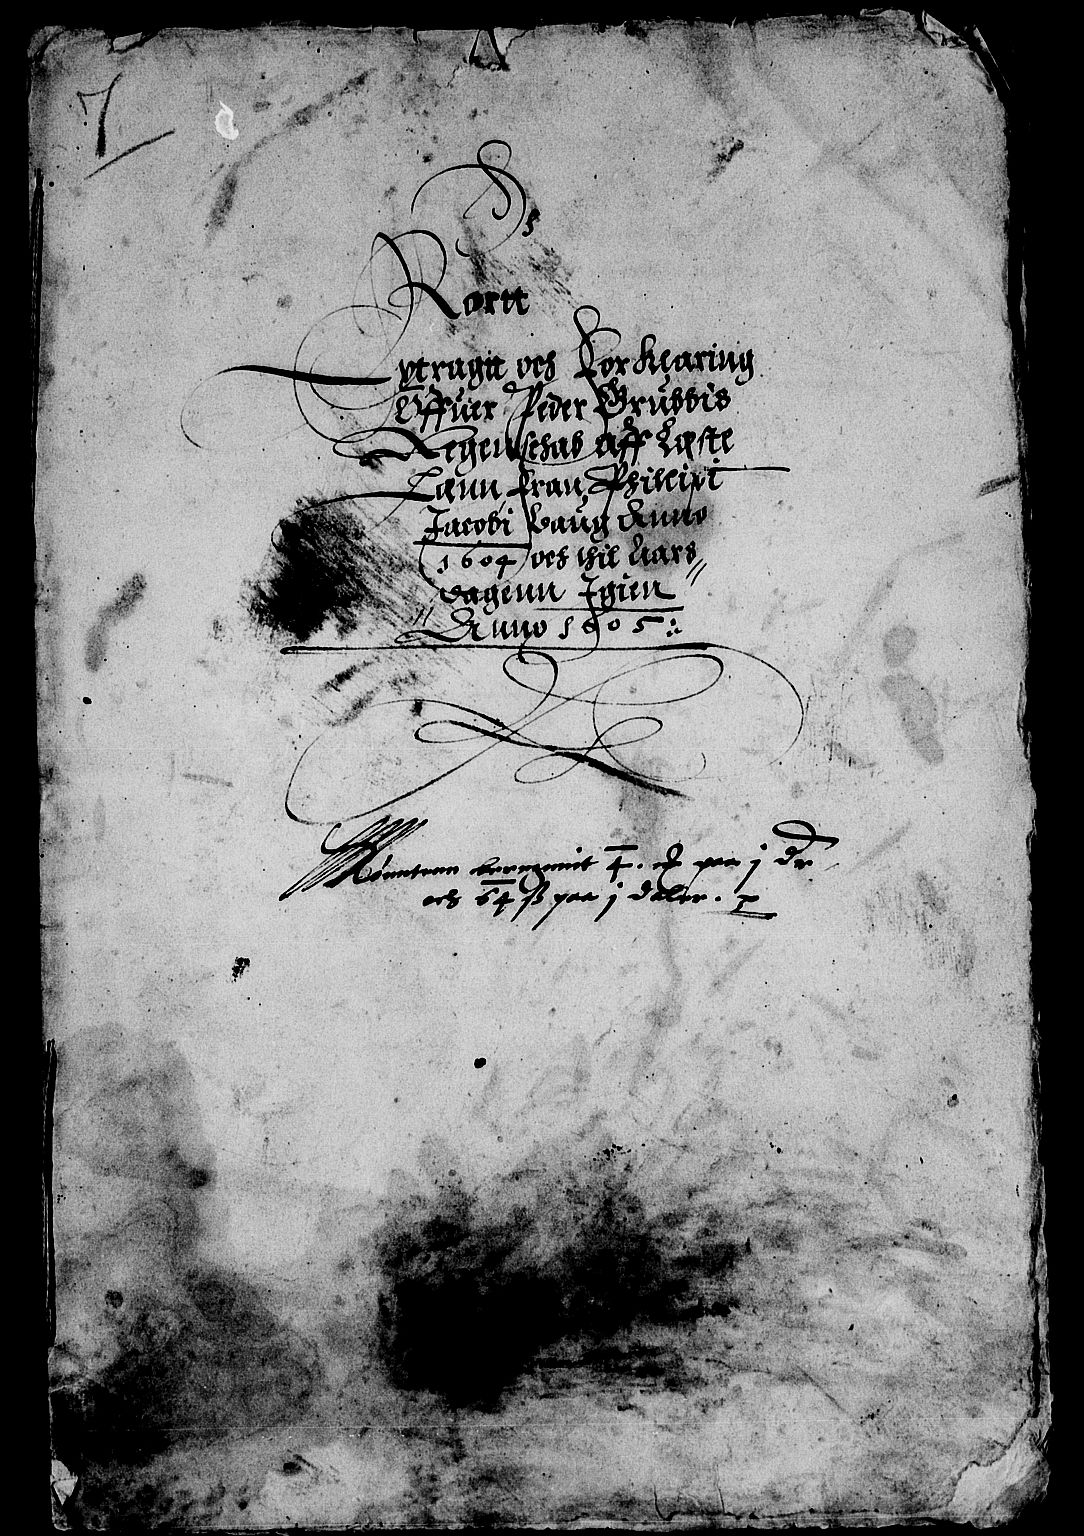 7
Kortt
Vtragtt och Forklaring
Offuer Peder Grubbis
Regenschab aff Løste
Lænn fran Philippi
Jacobi Daug Anno
1604 och thil Aars
dagenn Igien
Anno 1605
Mønnten beregnnit 4 paa j Dr
och 64 ß paa j daler